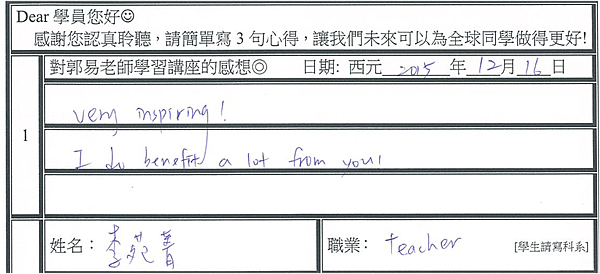 Dear 學員您好☺
感謝您認真聆聽，請簡單寫 3 句心得，讓我們未來可以為全球同學做得更好!
對郭易老師學習講座的感想◎ 日期: 西元 2015 年 12 月 16 日
1
very inspiring!
I do benefit a lot from you!
姓名： 李苑菁 職業： teacher [學生請寫科系]